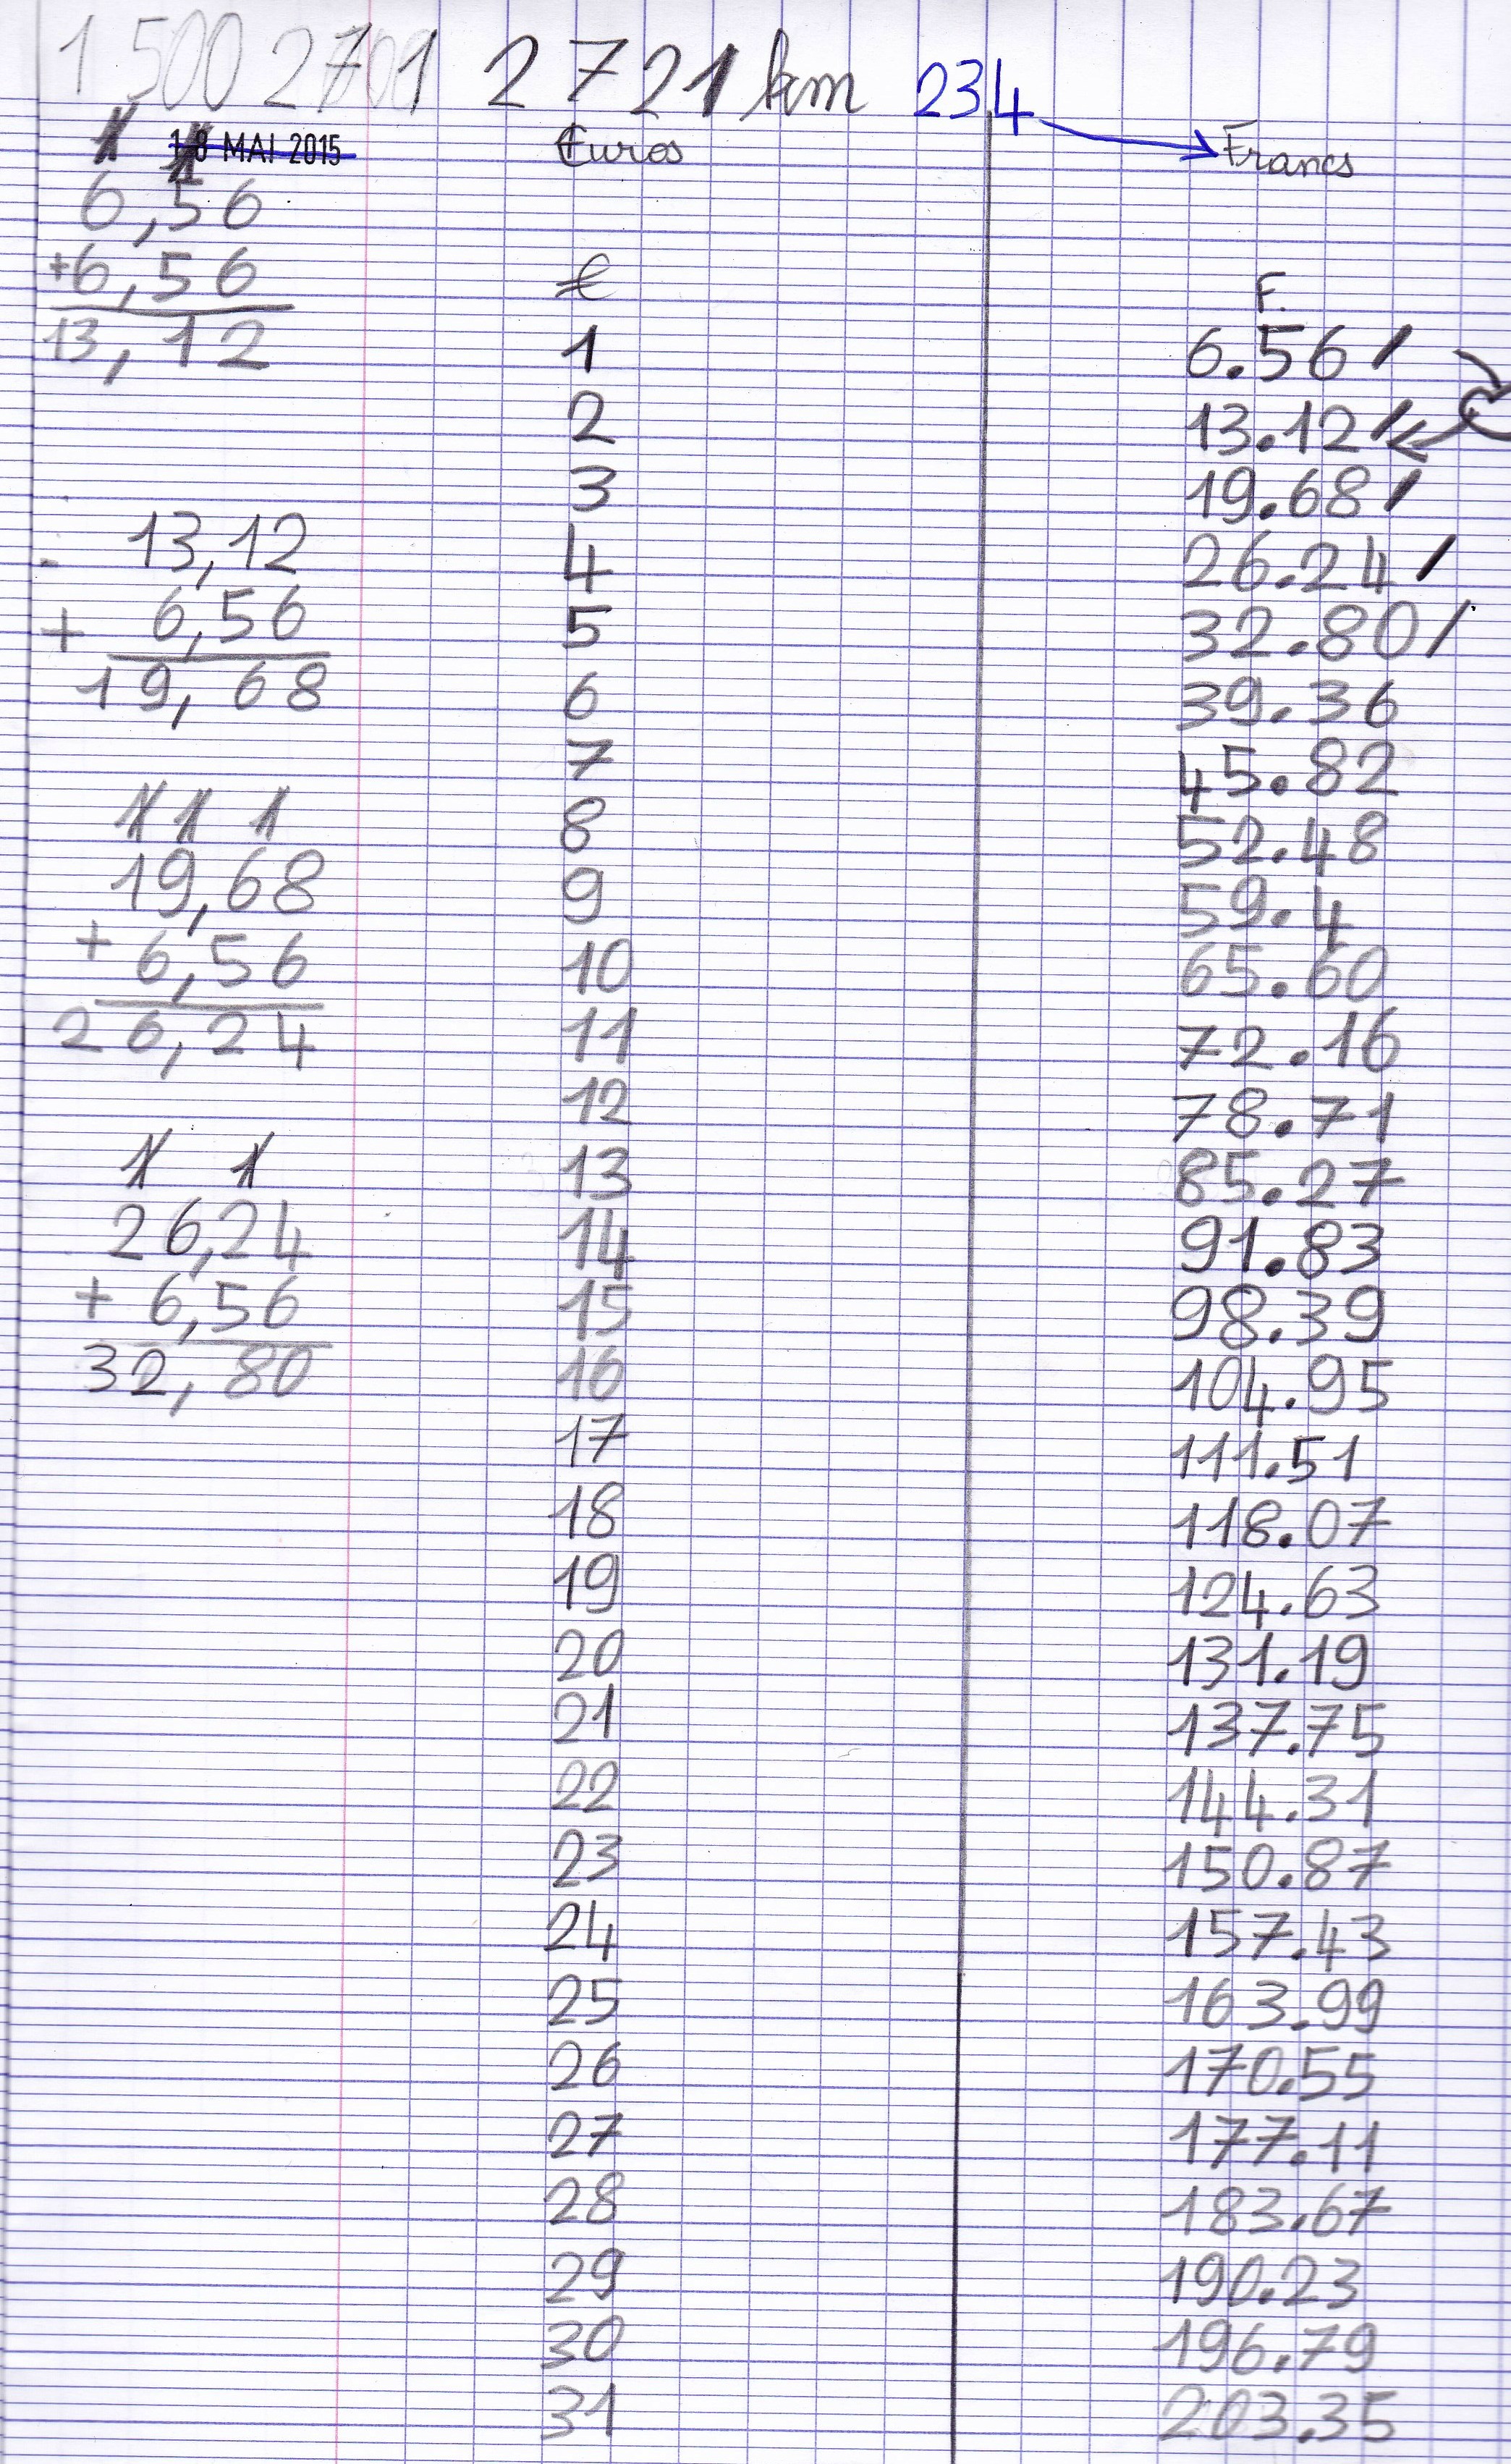 1 500 2701 2721 km 234
18 MAI 2015 Euros Francs
1 1
6,56
+6,56
13,12
13,12
+ 6,56
19,68
1 1 1
19,68
+ 6,56
26,24
1 1
26,24
+ 6,56
32,80
€ F.
1 6.56
2 13.12
3 19.68
4 26.24
5 32.80
6 39.36
7 45.82
8 52.48
9 59.4
10 65.60
11 72.16
12 78.71
13 85.27
14 91.83
15 98.39
16 104.95
17 111.51
18 118.07
19 124.63
20 131.19
21 137.75
22 144.31
23 150.87
24 157.43
25 163.99
26 170.55
27 177.11
28 183.67
29 190.23
30 196.79
31 203.35